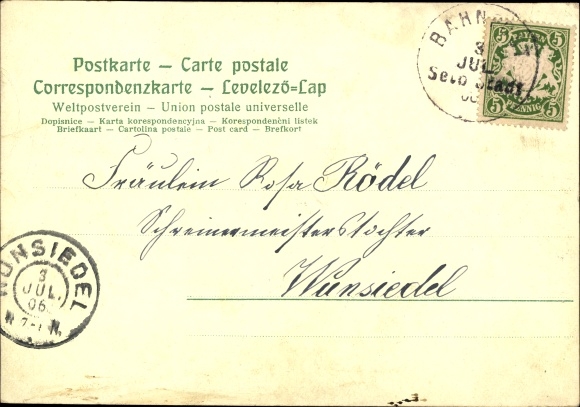 Postkarte – Carte postale
Correspondenzkarte – Levelező-Lap
Weltpostverein – Union postale universelle
Dopisnice – Karta korespondencyjna – Korespondenční listek
Briefkaart – Cartolina postale – Post card – Brefkort
BAHN
3
JUL.
Selb Stadt
BAYERN
5 5
5 5
PFENNIG
Fräulein Rosa Rödel
Schreinermeisterstochter
Wunsiedel
WUNSIEDEL
3
JUL.
06